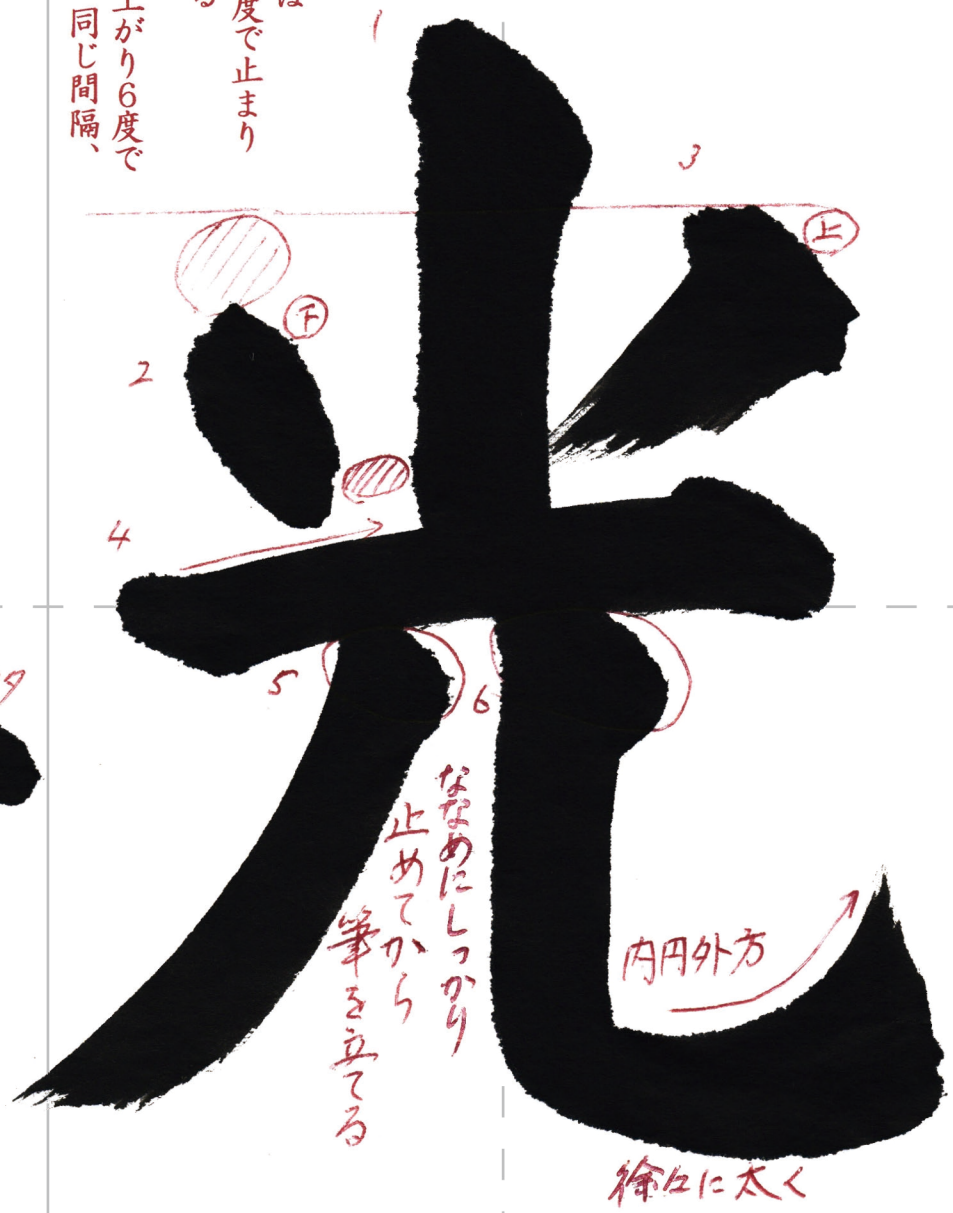 は
る
度で止まり
上がり6度で
同じ間隔、
光
1
2
3
4
5
6
上
下
ななめにしっかり
止めてから
筆を立てる
内円外方
徐々に太く